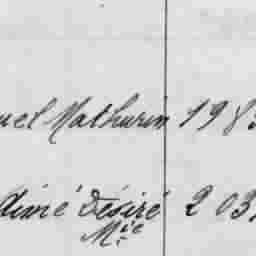 uel Mathurin 198
Aimé Désiré 203
Mie